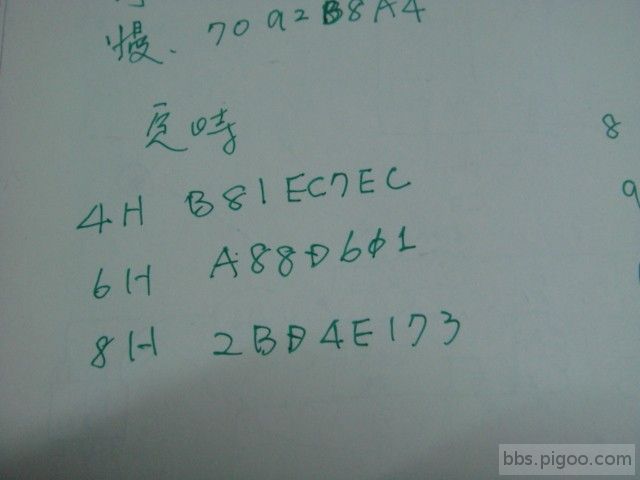 慢、70A2B8A4
定時
8
4H B81EC7EC
9
6H A88D601
8H 2BD4E173
bbs.pigoo.com